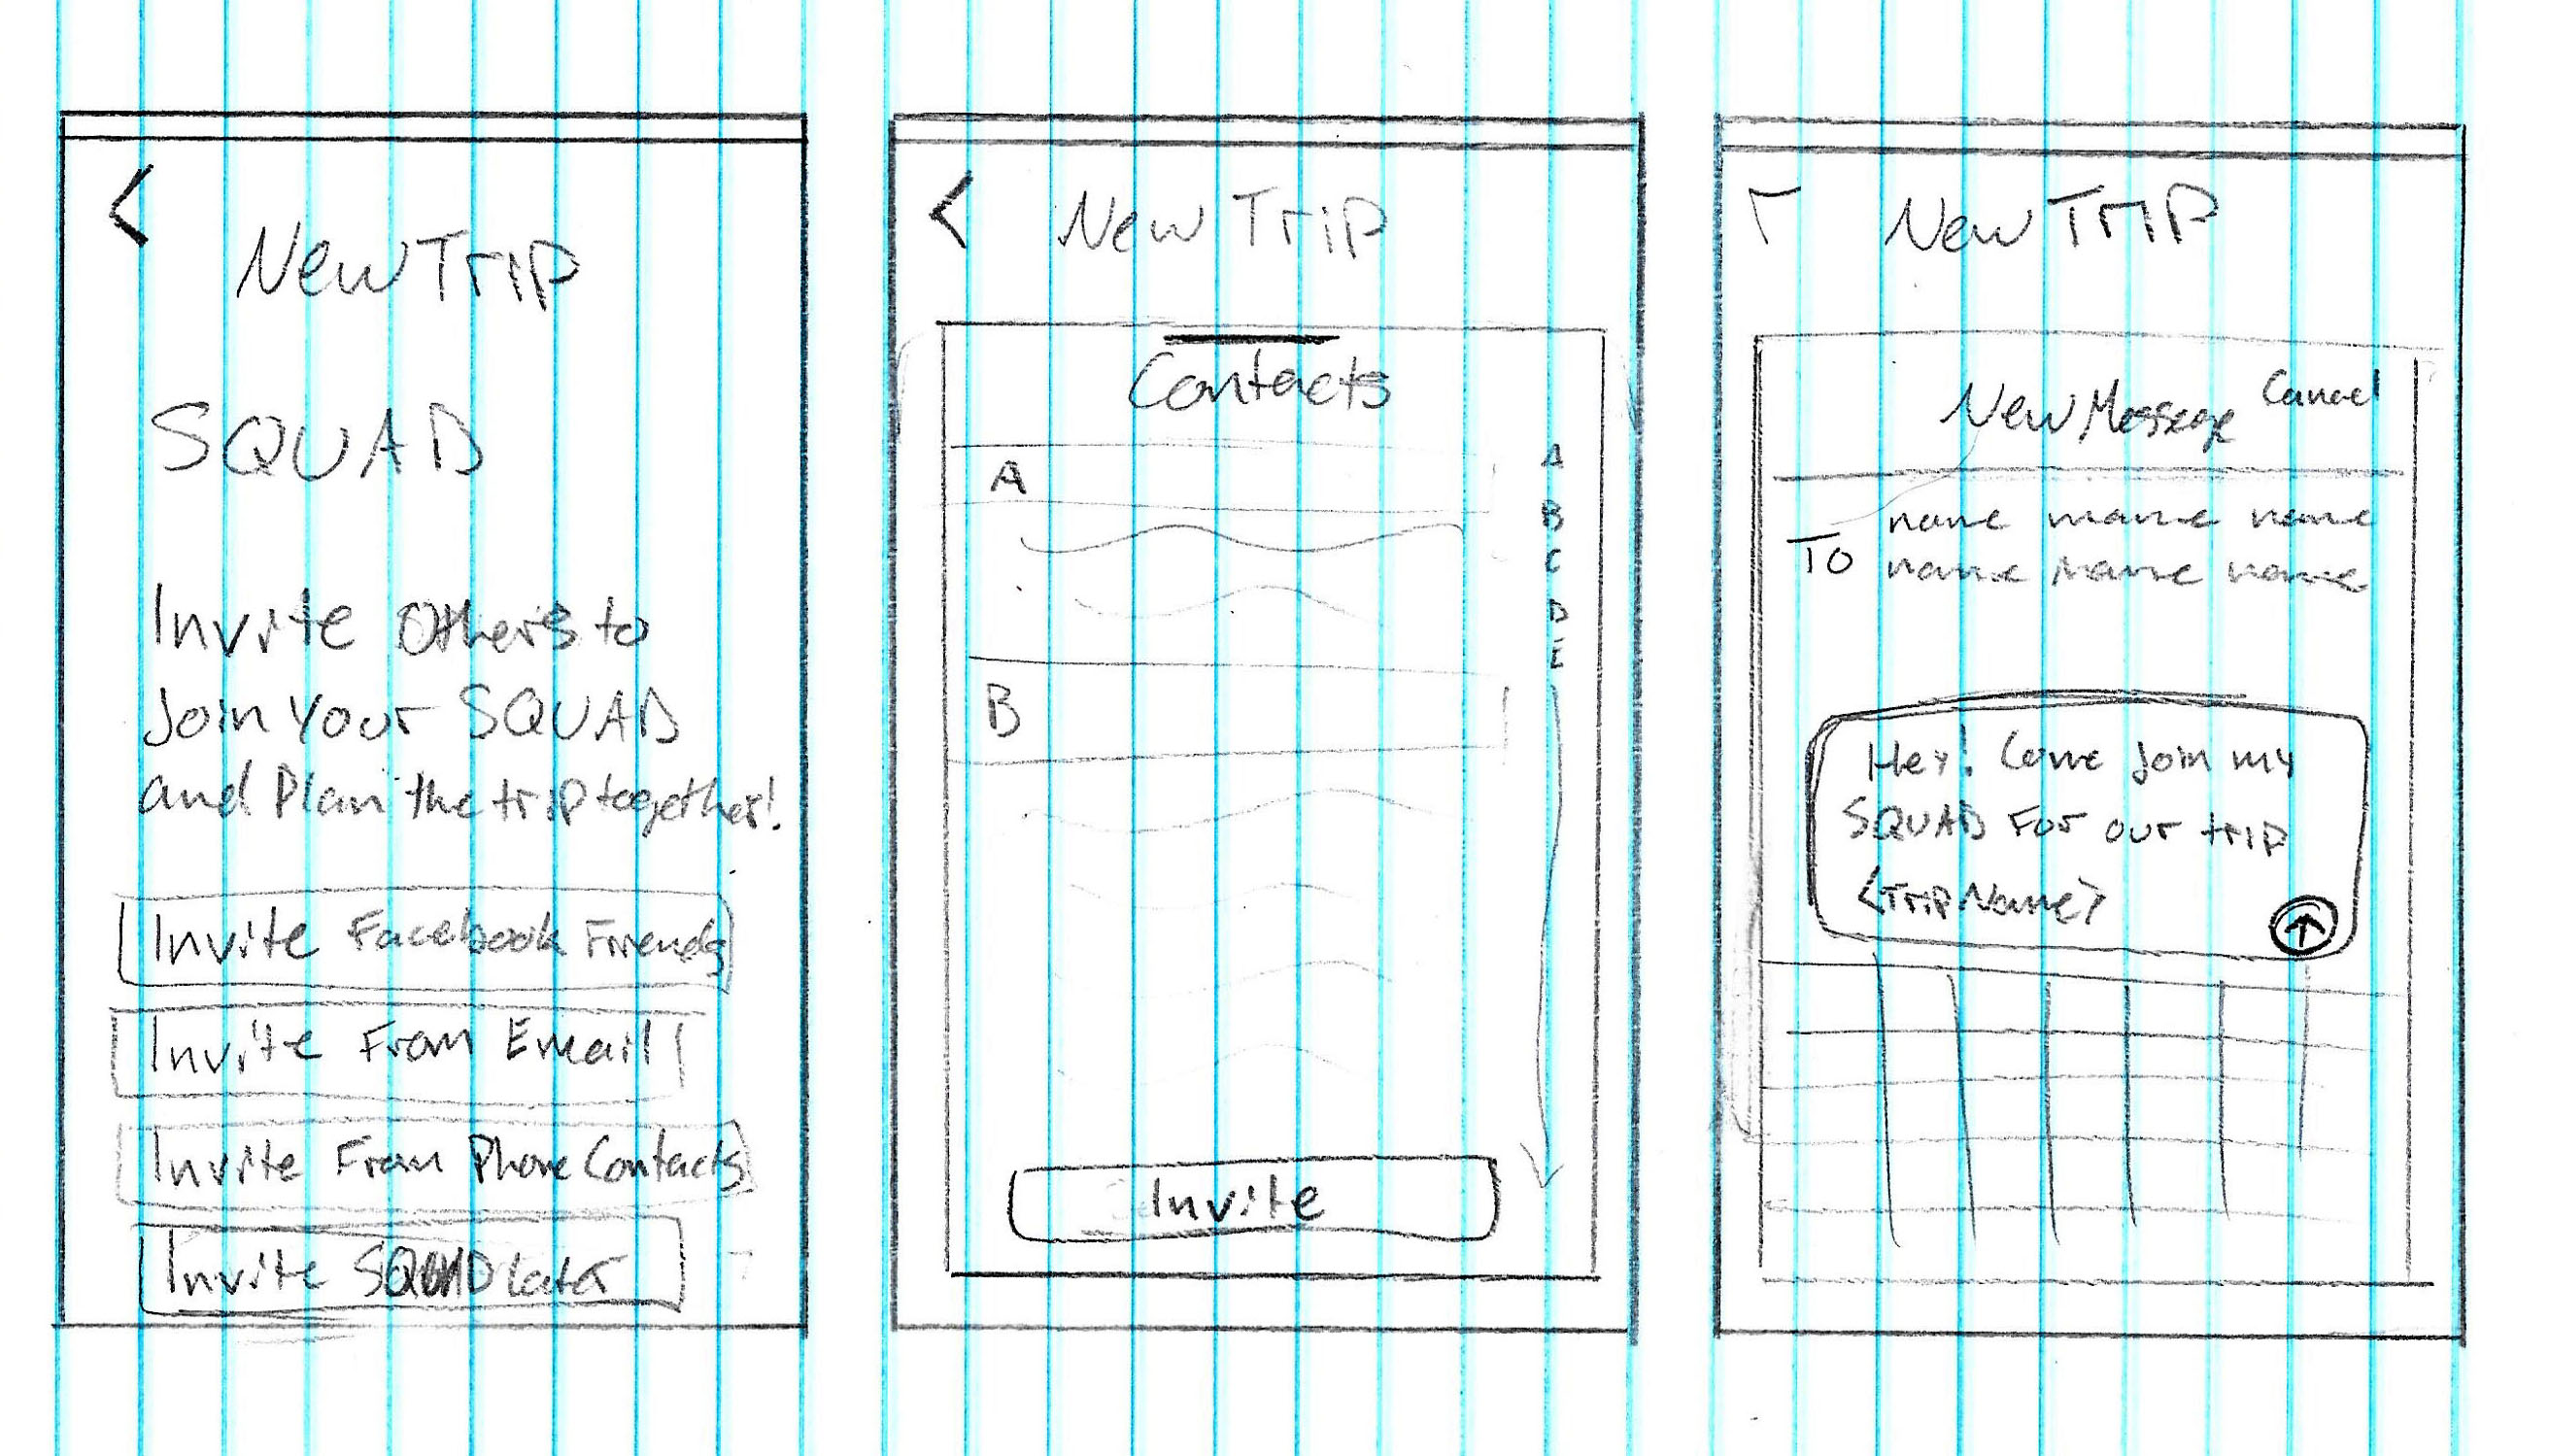 <
New Trip
SQUAD
Invite Others to
Join Your SQUAD
and Plan the trip together!
Invite Facebook Friends
Invite From Email
Invite From Phone Contacts
Invite SQUAD Later
<
New Trip
Contacts
A
B
A
B
C
D
E
Invite
New Trip
New Message
Cancel
To
name name name
name name name
Hey! Come join my
SQUAD For our trip
<Trip Name>